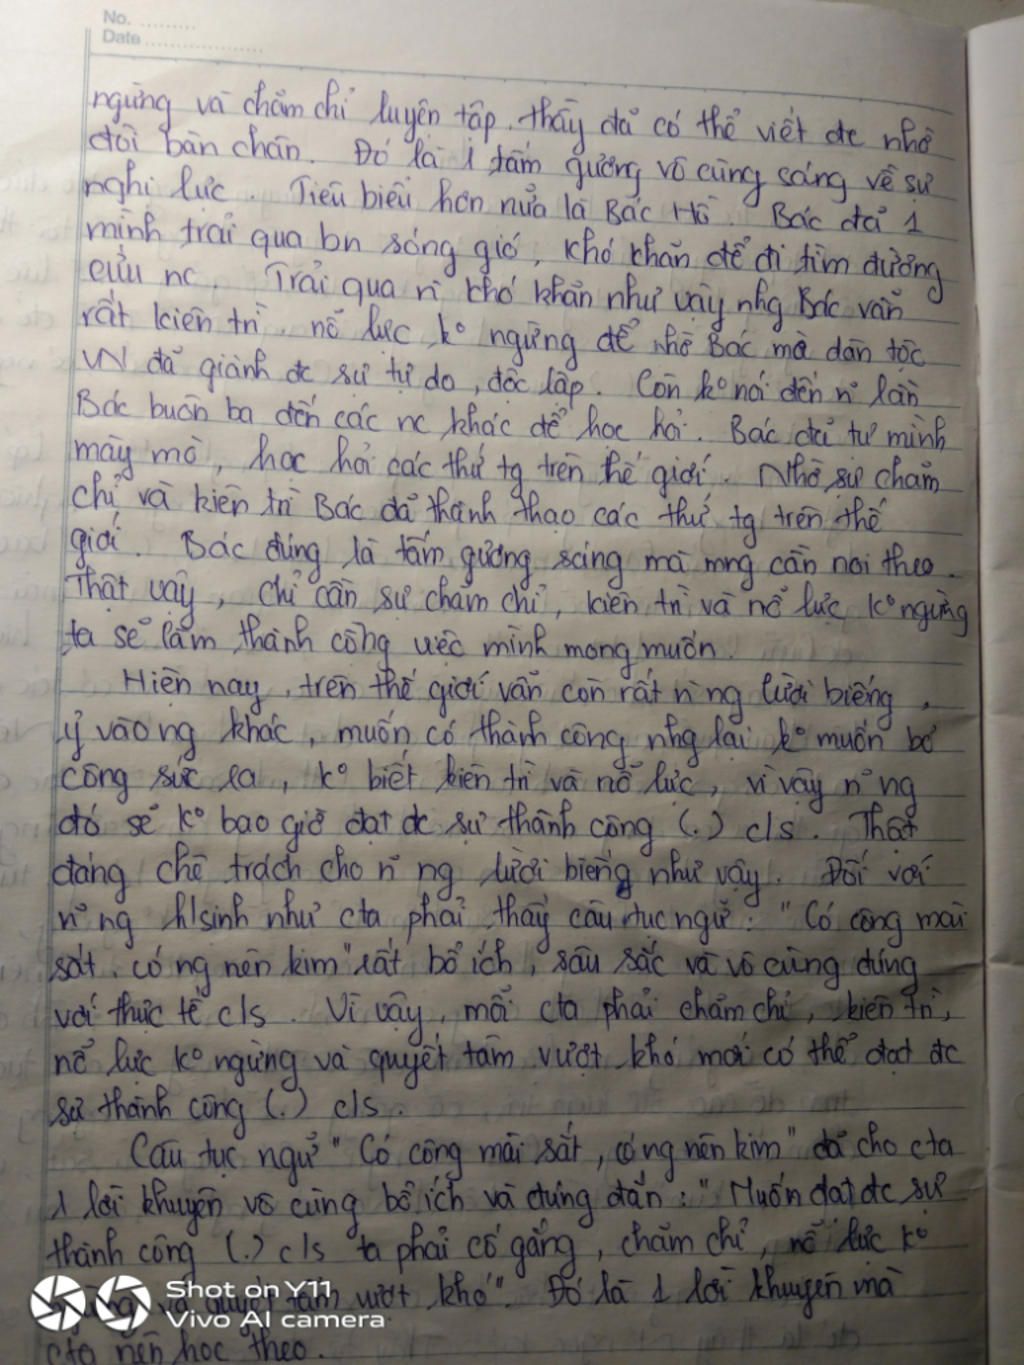 No. ..........
Date ....................
ngừng và chăm chỉ luyện tập, thầy đã có thể viết đc nhờ
đôi bàn chân. Đó là 1 tấm gương vô cùng sáng về sự
nghị lực. Tiêu biểu hơn nữa là Bác Hồ. Bác đã 1
mình trải qua bn sóng gió, khó khăn để đi tìm đường
cứu nc. Trải qua n~ khó khăn như vậy nhg Bác vẫn
rất kiên trì nỗ lực ko ngừng để nhờ Bác mà dân tộc
VN đã giành đc sự tự do, độc lập. Còn ko nói đến n~ lần
Bác buôn ba đến các nc khác để học hỏi. Bác đã tự mình
mày mò, học hỏi các thứ tg trên thế giới. Nhờ sự chăm
chỉ và kiên trì Bác đã thành thạo các thứ tg trên thế
giới. Bác đúng là tấm gương sáng mà mng cần noi theo.
Thật vậy, chỉ cần sự chăm chỉ, kiên trì và nỗ lực ko ngừng
ta sẽ làm thành công việc mình mong muốn.
Hiện nay, trên thế giới vẫn còn rất n` ng lười biếng,
ỷ vào ng khác, muốn có thành công nhg lại ko muốn bỏ
công sức ra, ko biết kiên trì và nỗ lực, vì vậy n~ ng
đó sẽ ko bao giờ đạt đc sự thành công (.) c/s. Thật
đáng chê trách cho n~ ng lười biếng như vậy. Đối với
n~ ng h/sinh như cta phải thấy câu tục ngữ: "Có công mài
sắt, có ng nên kim" rất bổ ích, sâu sắc và vô cùng đúng
với thực tế c/s. Vì vậy, mỗi cta phải chăm chỉ, kiên trì,
nỗ lực ko ngừng và quyết tâm vượt khó mới có thể đạt đc
sự thành công (.) c/s.
Câu tục ngữ "Có công mài sắt, có ng nên kim" đã cho cta
1 lời khuyên vô cùng bổ ích và đúng đắn: "Muốn đạt đc sự
thành công (.) c/s ta phải cố gắng, chăm chỉ, nỗ lực ko
ngừng và quyết tâm vượt khó". Đó là 1 lời khuyên mà
cta nên học theo.
Shot on Y11
Vivo AI camera